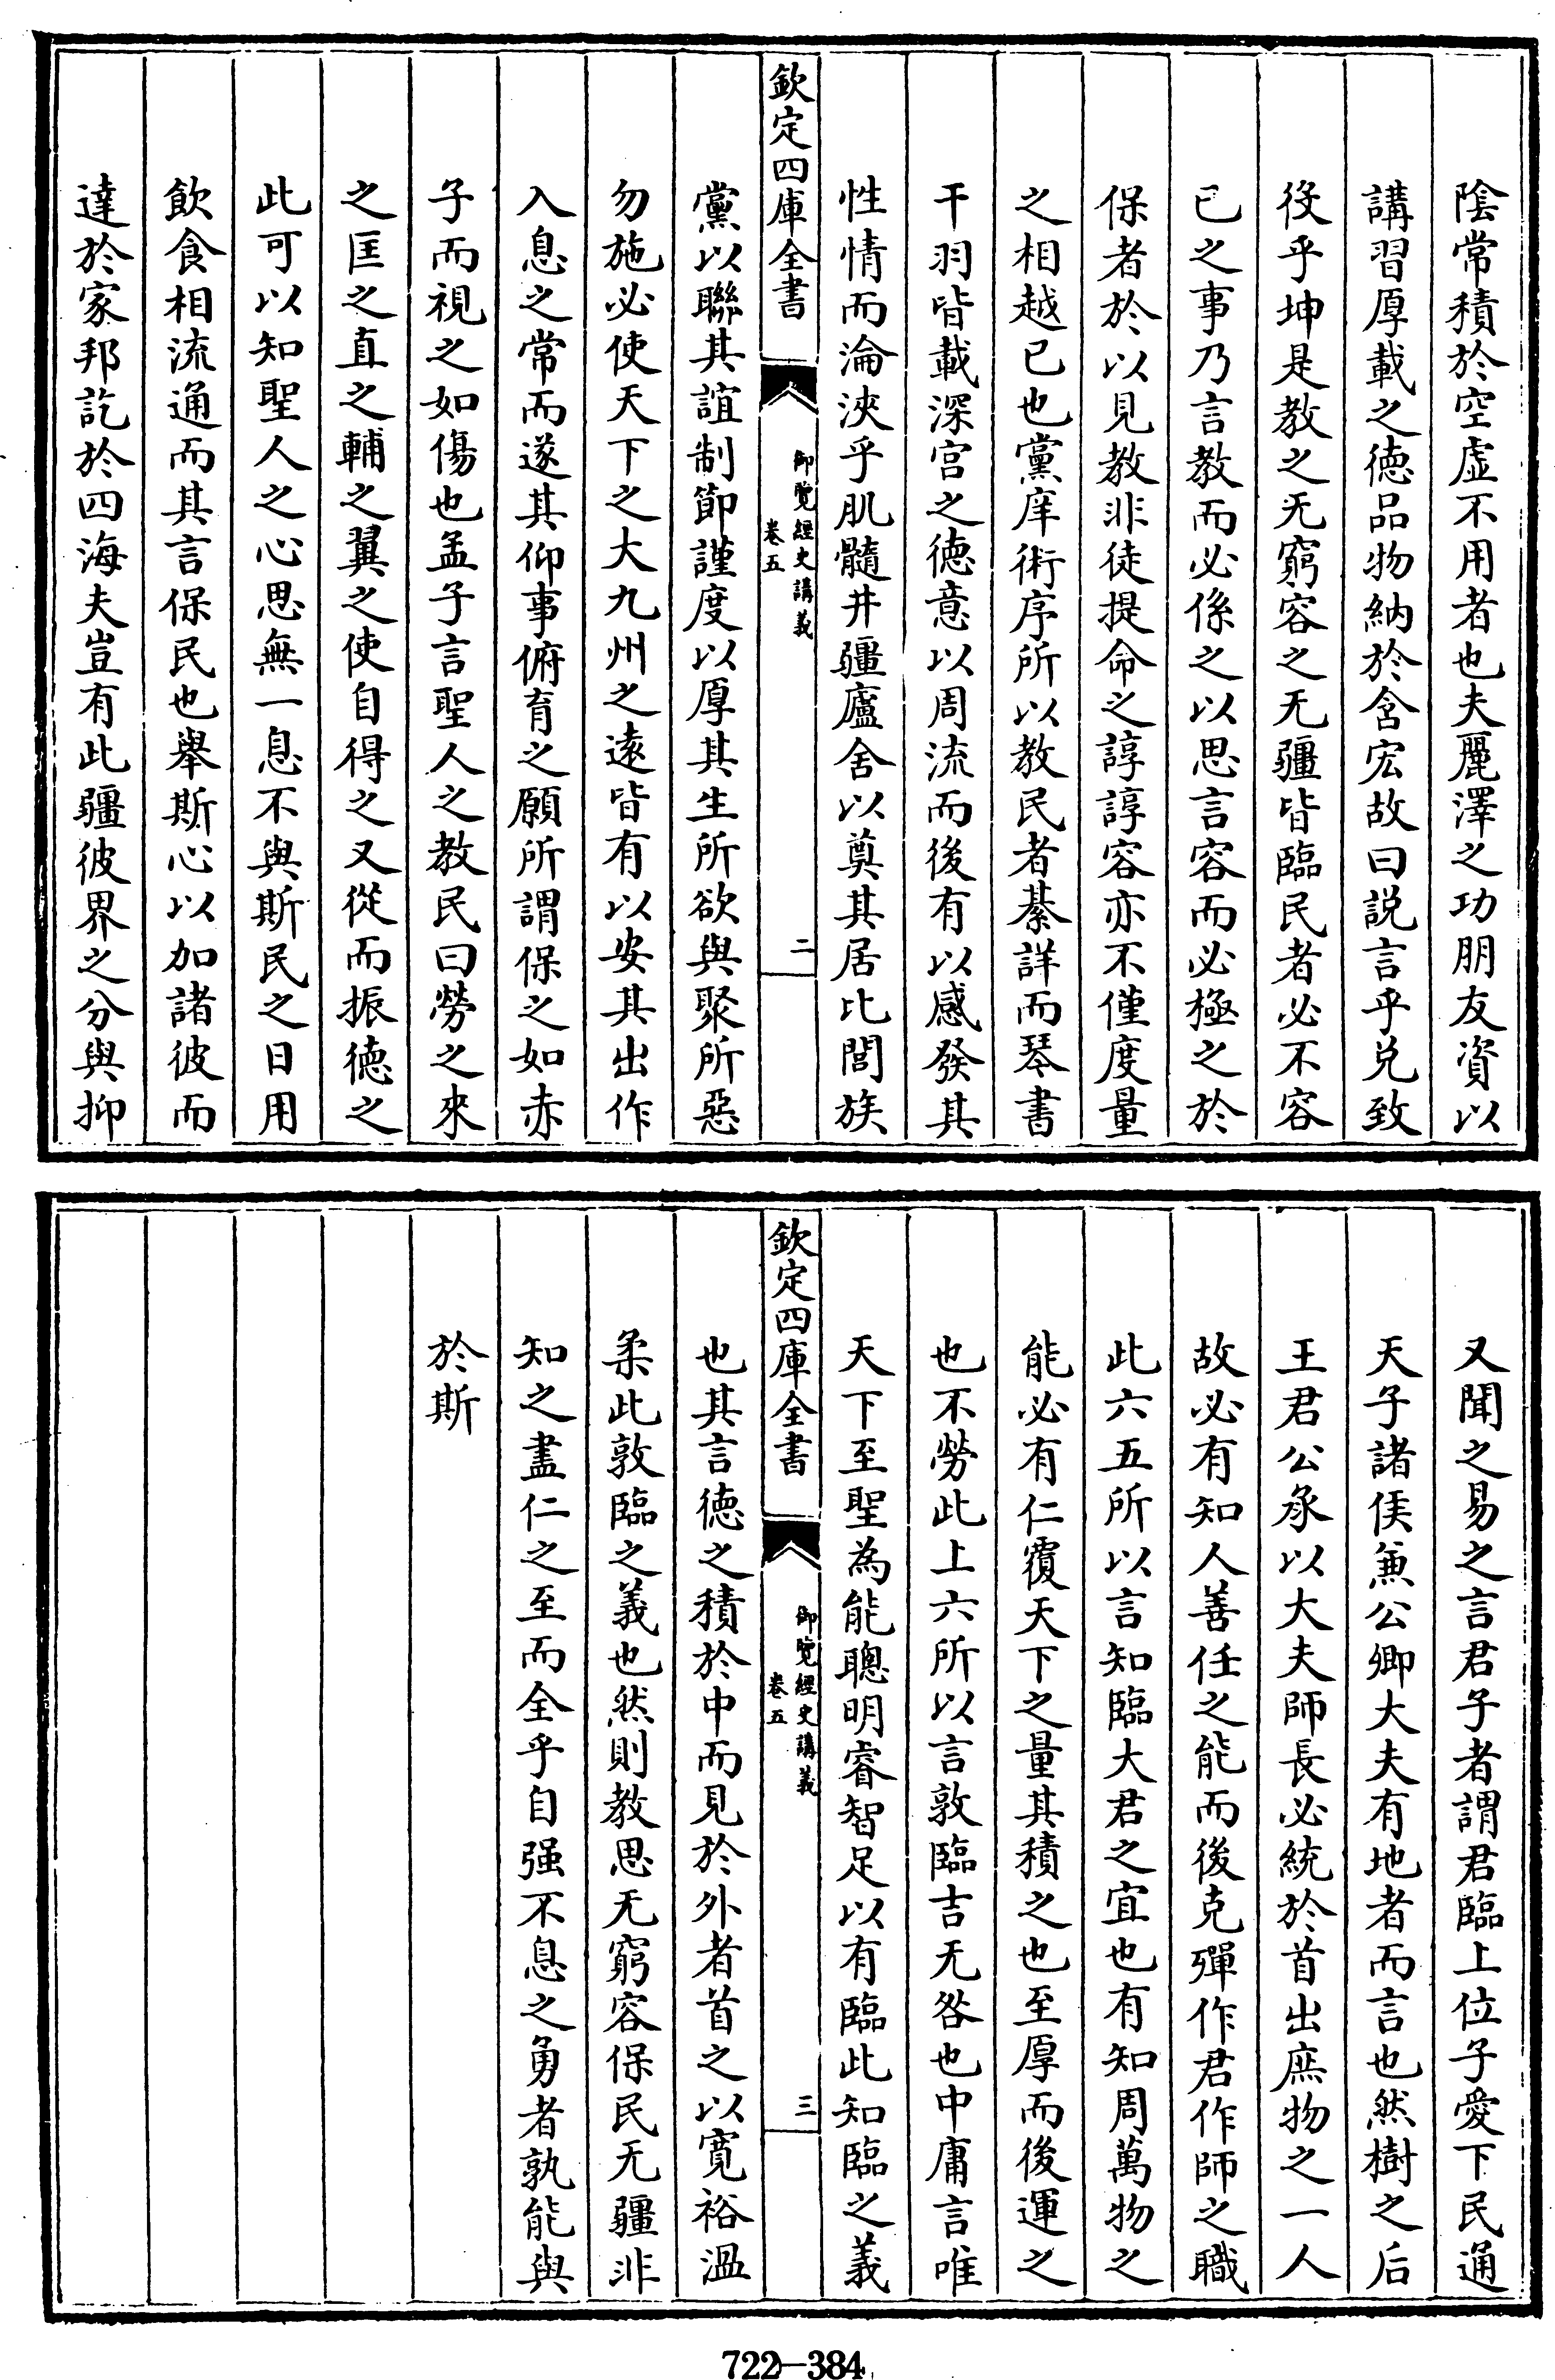 陰常積於空虛不用者也夫麗澤之功朋友資以
講習厚載之德品物納於含宏故曰説言乎兑致
役乎坤是教之无窮容之无疆皆臨民者必不容
已之事乃言教而必係之以思言容而必極之於
保者於以見教非徒提命之諄諄容亦不僅度量
之相越已也黨庠術序所以教民者綦詳而琴書
干羽皆載深宫之德意以周流而後有以感發其
性情而淪浹乎肌髓井疆廬舍以奠其居比閭族
欽定四庫全書
御覽經史講義
卷五
二
黨以聯其誼制節謹度以厚其生所欲與聚所惡
勿施必使天下之大九州之遠皆有以安其出作
入息之常而遂其仰事俯育之願所謂保之如赤
子而視之如傷也孟子言聖人之教民曰勞之來
之匡之直之輔之翼之使自得之又從而振德之
此可以知聖人之心思無一息不與斯民之日用
飲食相流通而其言保民也舉斯心以加諸彼而
達於家邦訖於四海夫豈有此疆彼界之分與抑
又聞之易之言君子者謂君臨上位子愛下民通
天子諸侯兼公卿大夫有地者而言也然樹之后
王君公承以大夫師長必統於首出庶物之一人
故必有知人善任之能而後克殫作君作師之職
此六五所以言知臨大君之宜也有知周萬物之
能必有仁覆天下之量其積之也至厚而後運之
也不勞此上六所以言敦臨吉无咎也中庸言唯
天下至聖為能聰明睿智足以有臨此知臨之義
欽定四庫全書
御覽經史講義
卷五
三
也其言德之積於中而見於外者首之以寬裕温
柔此敦臨之義也然則教思无窮容保民无疆非
知之盡仁之至而全乎自强不息之勇者孰能與
於斯
722—384